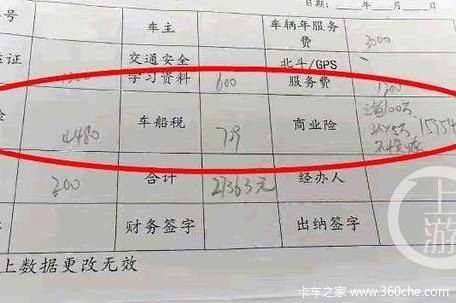 日期: 年 月 日
号 车主 车辆年服务费 3000
证 交通安全学习资料 600 北斗/GPS服务费 1200
险 4480 车船税 739 商业险 15754
200 合计 27363元 经办人
字 财务签字 出纳签字
上数据更改无效
上游
卡车之家·www.360che.com